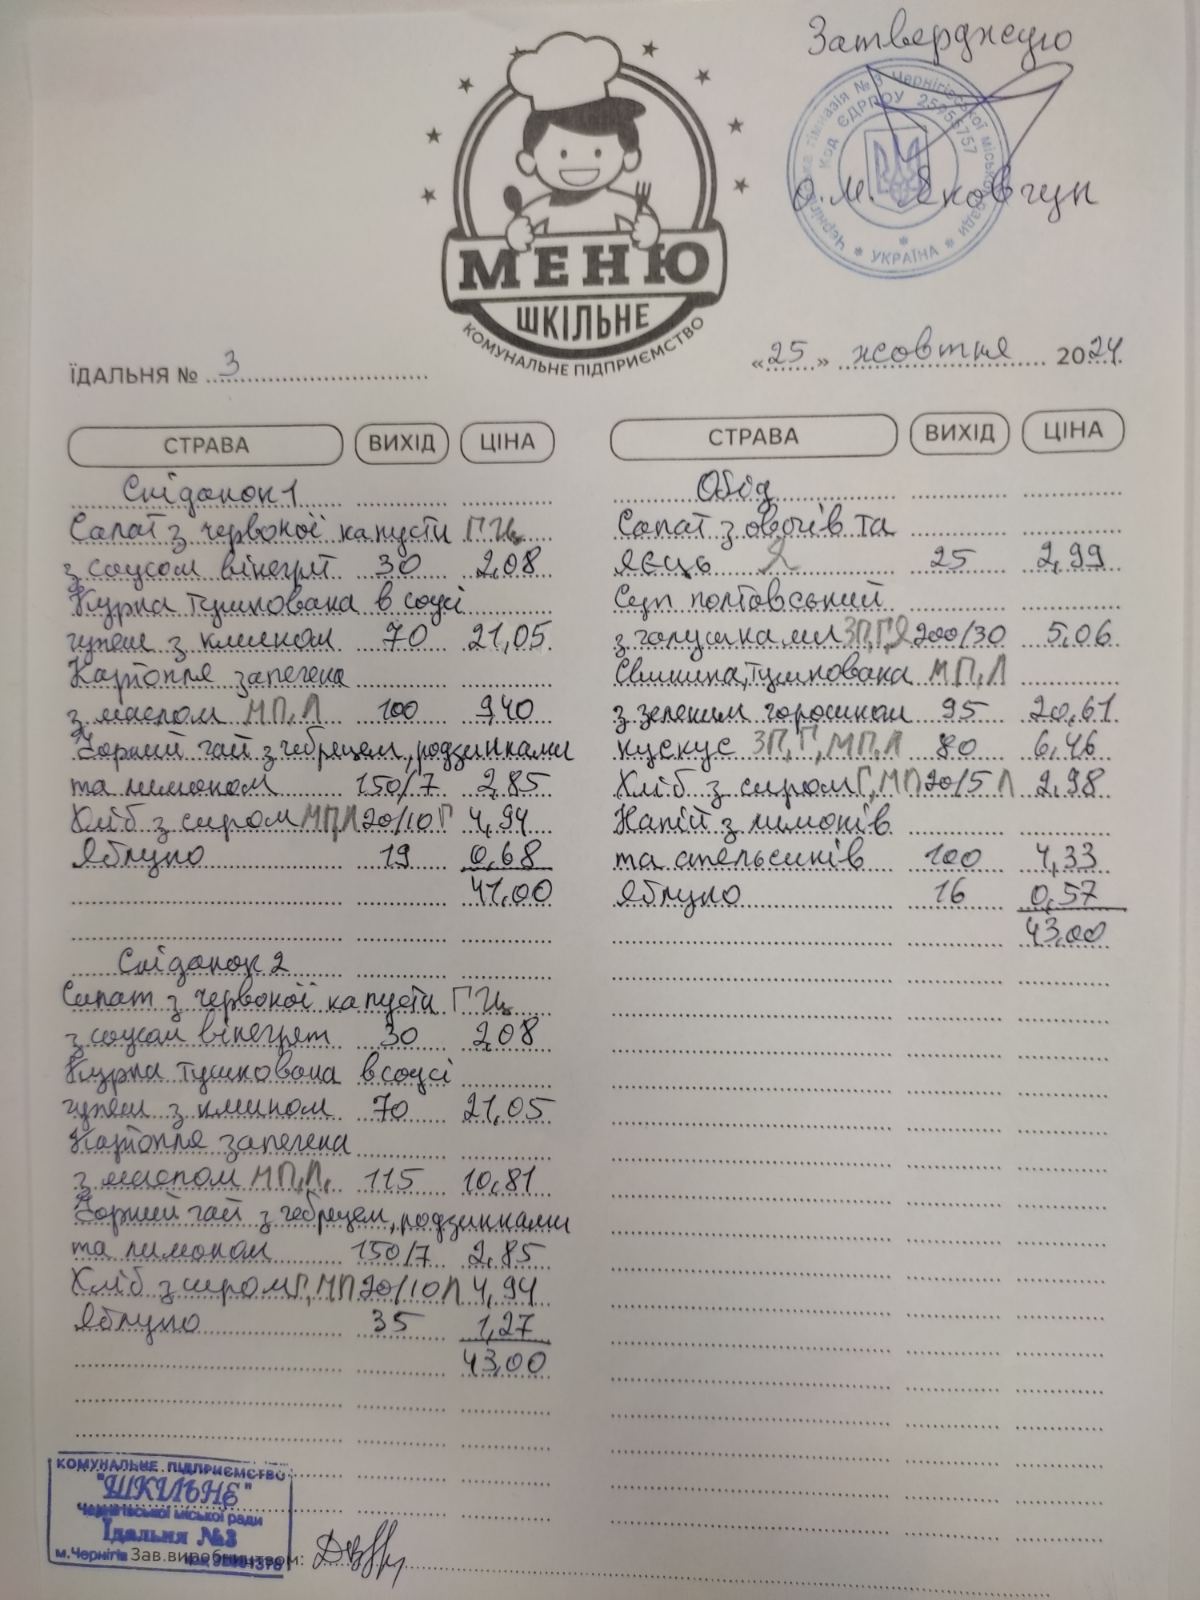 Затверджую
Чернігівська гімназія № 3 Чернігівської міської ради
Код ЄДРПОУ 25956757
* УКРАЇНА *
О.М. Яковчук
МЕНЮ
ШКІЛЬНЕ
КОМУНАЛЬНЕ ПІДПРИЄМСТВО
ЇДАЛЬНЯ № 3
«25» жовтня 2024
СТРАВА ВИХІД ЦІНА
Сніданок 1
Салат з червоної капусти Г Ц
з соусом вінегрет 30 2,08
Курка тушкована в соусі
чумен з кмином 70 21,05
Картопля запечена
з маслом МП,Л 100 9,40
Чорний чай з чебрецем, родзинками
та лимоном 150/7 2,85
Хліб з сиром МП,Л 20/10 Г 4,94
Яблуко 19 0,68
41,00
Сніданок 2
Салат з червоної капусти Г Ц
з соусом вінегрет 30 2,08
Курка тушкована в соусі
чумен з кмином 70 21,05
Картопля запечена
з маслом МП,Л, 115 10,81
Чорний чай з чебрецем, родзинками
та лимоном 150/7 2,85
Хліб з сиром Г,МП 20/10 Л 4,94
Яблуко 35 1,27
43,00
СТРАВА ВИХІД ЦІНА
Обід
Салат з овочів та
яєць Я 25 2,99
Суп полтавський
з галушками ЗП,Г,Я 200/30 5,06
Свинина, тушкована МП,Л
з зеленим горошком 95 20,61
кускус ЗП,Г,МП,Л 80 6,46
Хліб з сиром Г,МП 20/5 Л 2,98
Напій з лимонів
та апельсинів 100 4,33
Яблуко 16 0,57
43,00
КОМУНАЛЬНЕ ПІДПРИЄМСТВО
"ШКІЛЬНЕ"
Чернігівської міської ради
Їдальня №3
м.Чернігів
Зав.виробництвом: